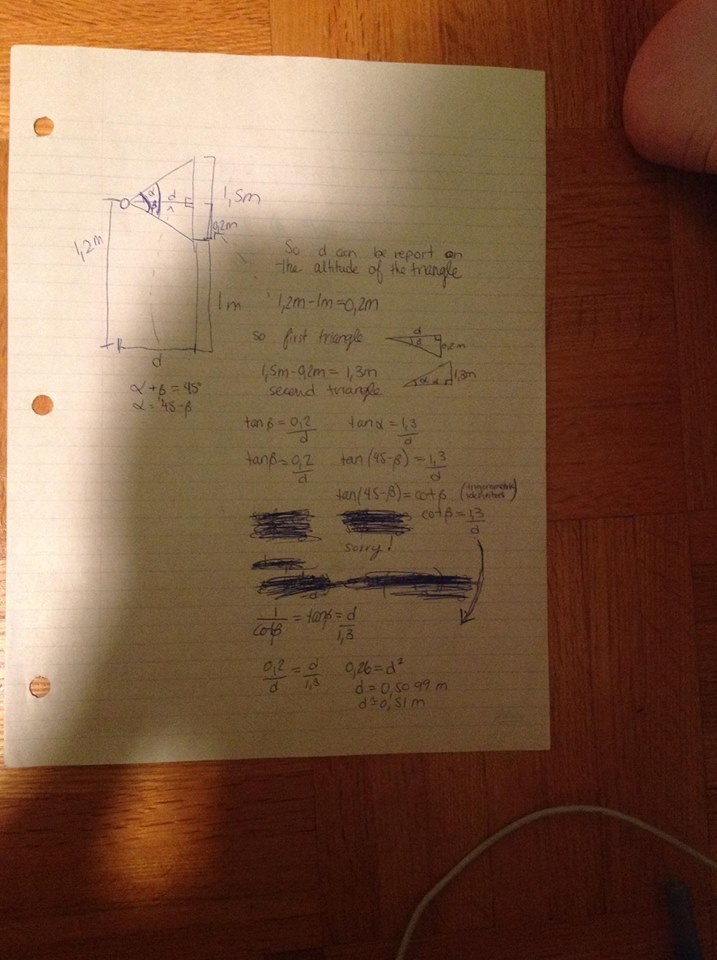 α
β
d
1,5m
0,2m
1,2m
1m
d
α + β = 45°
α = 45-β
So d can be report on
the altitude of the triangle
1,2m-1m=0,2m
so first triangle
d
β
0,2m
1,5m-0,2m= 1,3m
second triangle
α
d
1,3m
tanβ = 0,2/d tanα = 1,3/d
tanβ = 0,2/d tan(45-β) = 1,3/d
tan(45-β) = cotβ
cotβ = 1,3/d
sorry!
1/cotβ = tanβ = d/1,3
0,2/d = d/1,3 0,26 = d²
d = 0,5099 m
d ≅ 0,51 m